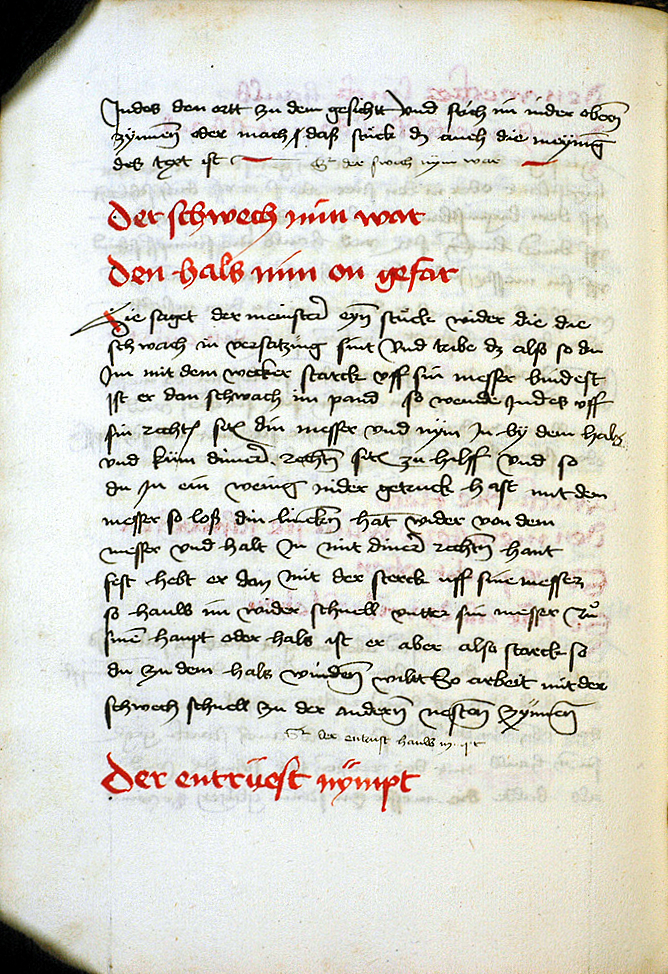 Indes den ortt zu dem gesichtt Vnd stich im in der obern
zÿmen oder mach daß stuck dz auch die meÿnung
des text ist Gl der swech nÿm war
Der schwech nim war
Den hals nim on gefar
Hie saget der meinster eyn stucke wider die die
schwach in versatzung sint Vnd tribe dz alß so du
Im mit dem wecker starck vff sin messer bindest
Ist er dan schwach im pand so wende Indes vff
sin recht sit din messer vnd nÿm In by dem halß
vnd kum diner rechten sit zu hilff Vnd so
du In ein wenig nider getruck hast mit dem
messer so loß din lincken hat wider von dem
messer vnd halt In mit diner rechten hant
fest hebt er dan mit der sterck uff sine messer
so hauw im wider schnell vnter sin messer zu
sinem haupt oder hals ist er aber also starck so
du zu dem hals winden wilt So arbeit mit der
schwech schnell zu der andern nesten zÿmen
Gl der entrust hauw
Der entrüest nÿmpt